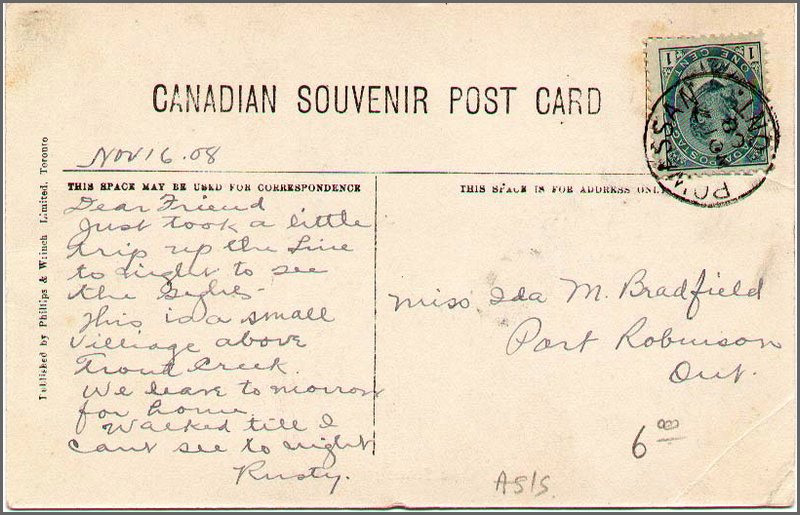 CANADIAN SOUVENIR POST CARD
1 ONE CENT 1
POWASSAN ONT.
Nov 16. 08
THIS SPACE MAY BE USED FOR CORRESPONDENCE
THIS SPACE IS FOR ADDRESS ONLY
Dear Friend
Just took a little
trip up the Line
to night to see
the Sights-
This is a small
Villiage above
Trout Creek.
We leave to morrow
for home.
Walked till I
cant see to night
Rusty.
Miss Ida M. Bradfield
Port Robinson
Ont.
6 00
AS/S.
Published by Phillips & Wrinch Limited, Toronto